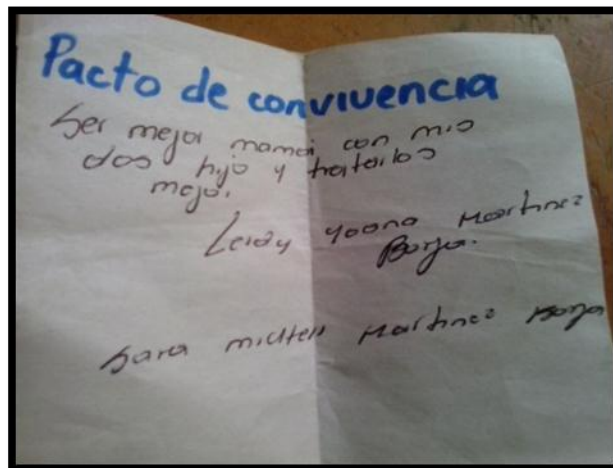 Pacto de convivencia
Ser mejor mamá con mis
dos hijo y tratarlos
mejor.
Leidy Yoana Martinez
Borja.
Sara Martinez Borja